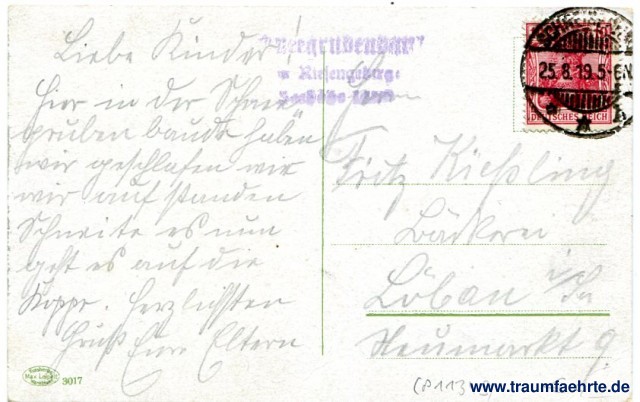 Liebe Kinder!
Hier in der Schnee
grubenbaude haben
wir geschlafen wie
wir aufstanden
Schneite es nun
geht es auf die
Koppe. Herzlichsten
Gruß Eure Eltern
Schneegrubenbaude
im Riesengebirge
Seehöhe
25.8.19.5-6N
DEUTSCHES REICH
Herrn
Fritz Kießling
Bäckerei
Löbau i/Sa
Neumarkt 9
3017
www.traumfaehrte.de